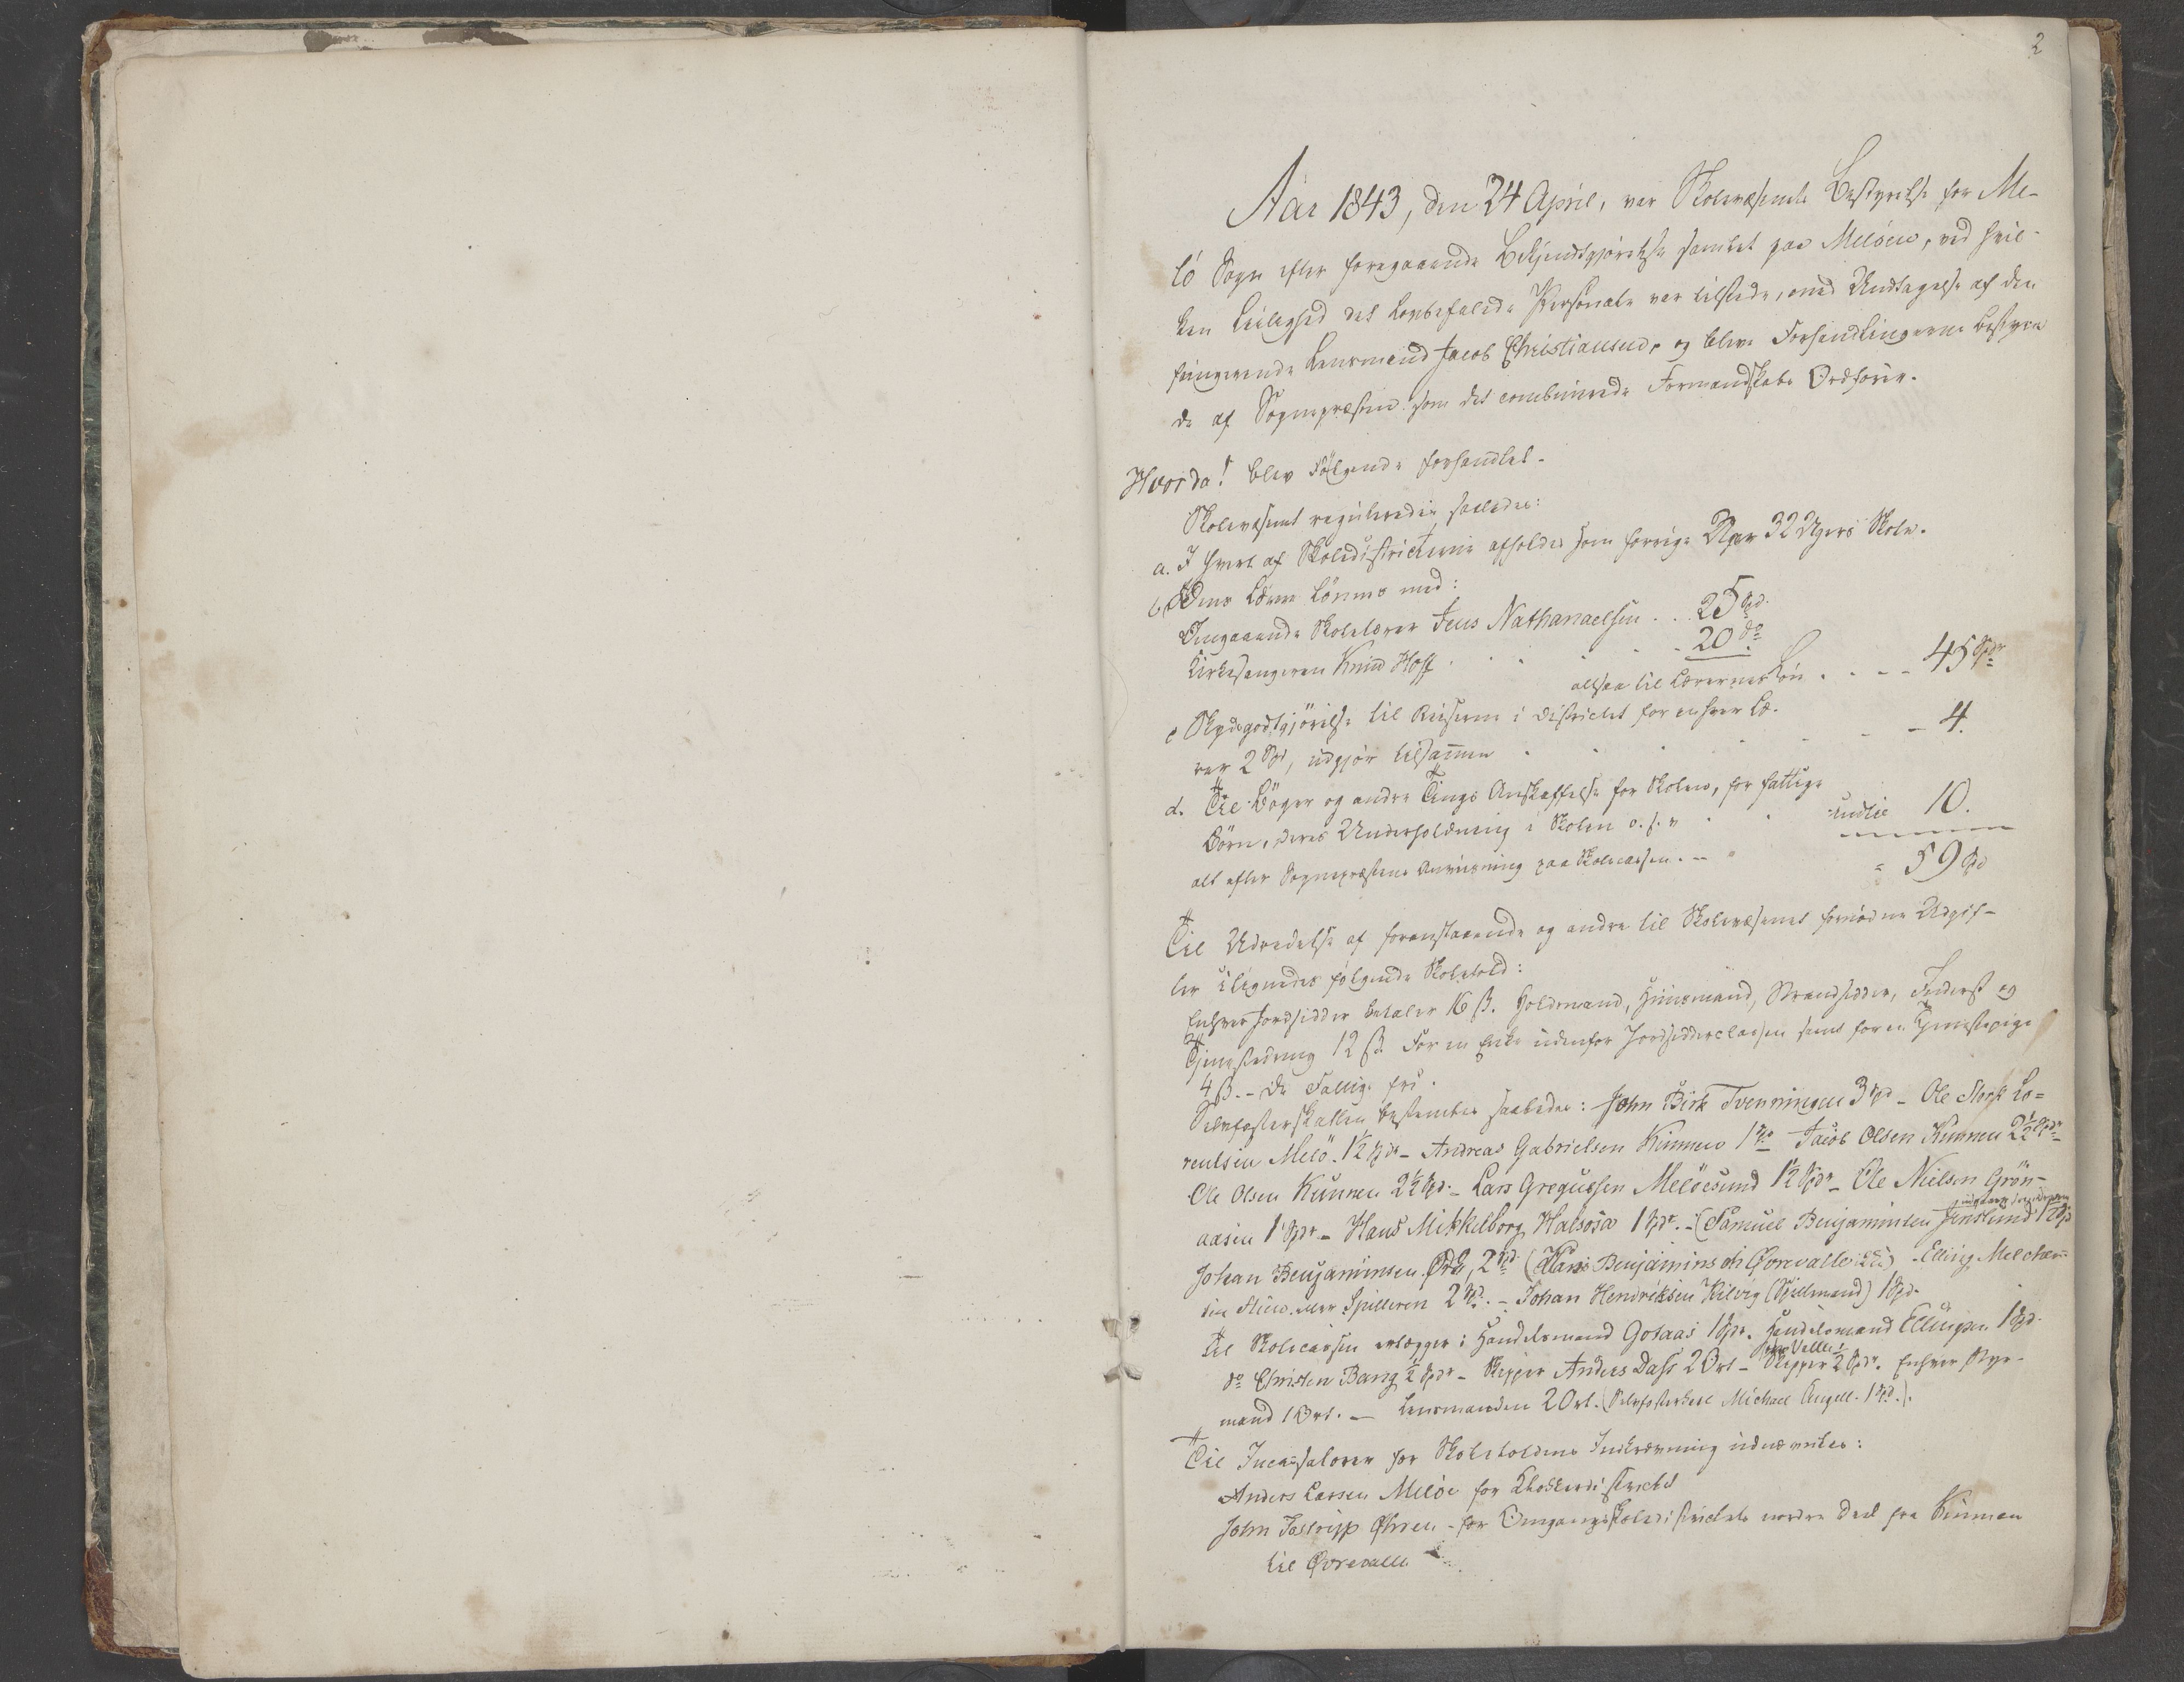 2
Aar 1843, den 24 April, var Skolevæsenets Bestyrelse for Me-
lö Sogn efter foregaaende Bekjendtgjørelse samlet paa Melöen, ved hvil-
ken Leilighed det Lovbefalede Personale var tilstede, med Undtagelse af den
fungerende Lensmand Jacob Christiansen, og bleve Forhandlingerne bestyre-
de af Sognepræsten som det combinerede Formandskabs Ordförer.
Hvorda! blev Fölgende forhandlet.
Skolevæsenet reguleredes saaledes:
a. I hvert af Skoledistricterne afholdes som forrige Aar 32 Ugers Skole.
b. Dens Lærere lönnes med:
Omgaaende Skolelærer Jens Nathanaelsen . . 25 Spd.
Kirkesangeren Knud Hoff . . . . 20 do
altsaa til Lærernes Lön . . . 45 Spdr
c Skydsgodtgjörelse til Reiserne i Districtet for enhver Læ-
rer 2 Spd, udgjör tilsammen . . . . . - 4.
d. Til Böger og andre Tings Anskaffelse for Skolen, for fattige
Börn, deres Underholdning i Skolen o.s.v . . indtil 10.
alt efter Sognepræstens Anviisning paa Skolecassen. -
= 59 Spd
Til Udredelse af foranstaaende og andre til Skolevæsenet fornödne Udgif-
ter ilignedes fölgende Skoletold:
Enhver Jordsidder betaler 16 ß. Holdsmand, Huusmand, Strandsidder, Inderst og
Tjenestedreng 12 ß. For en Enke udenfor Jordsidderclassen samt for en Tjenestepige
4 ß. - De Fattige fri.
Selvfosterskatten bestemtes saaledes: John Birk Tvenningen 3 Spd - Ole Stork Lo-
rentsen Melö. 1½ Spdr - Andreas Gabrielsen Kunnen 1 Spd Jacob Olsen Kunnen 2½ Spdr -
Ole Olsen Kunnen 2½ Spd. - Lars Gregussen Melöesund 1½ Spdr - Ole Nielsen Grön-
aasen 1 Spdr - Hans Mikkelborg Halsosa 1 Spdr. - (Samuel Benjaminsen Jenslund 1½ Spd
Johan Benjaminsen Ørnes, 2 Spd (Hans Benjaminsen Qvrevalle ) - Elling Melcher-
sen Spilleren 2 Spd. - Johan Hendriksen Kilvig (Spillemand) 1 Spd.
til Skolecassen erlægger: Handelsmand Gotaas 1 Spdr. Handelsmand Ellingsen 1 Spd.
do Christen Bang ½ Spdr - Skipper Anders Dass 2 Ort - Skipper ½ Spdr. Enhver Styr-
mand 1 Ort. - Lensmanden 2 Ort. (Selvfosterskat Michael Angell - 1 Spd.).
Til Incassatorer for Skoletoldens Indkrævning udnævntes:
Anders Larsen Melöe for Klokkerdistrictet
John Jastripp Øhren - for Omgangsskoledistrictets nordre Deel fra Kunnen
til Qvrevalle